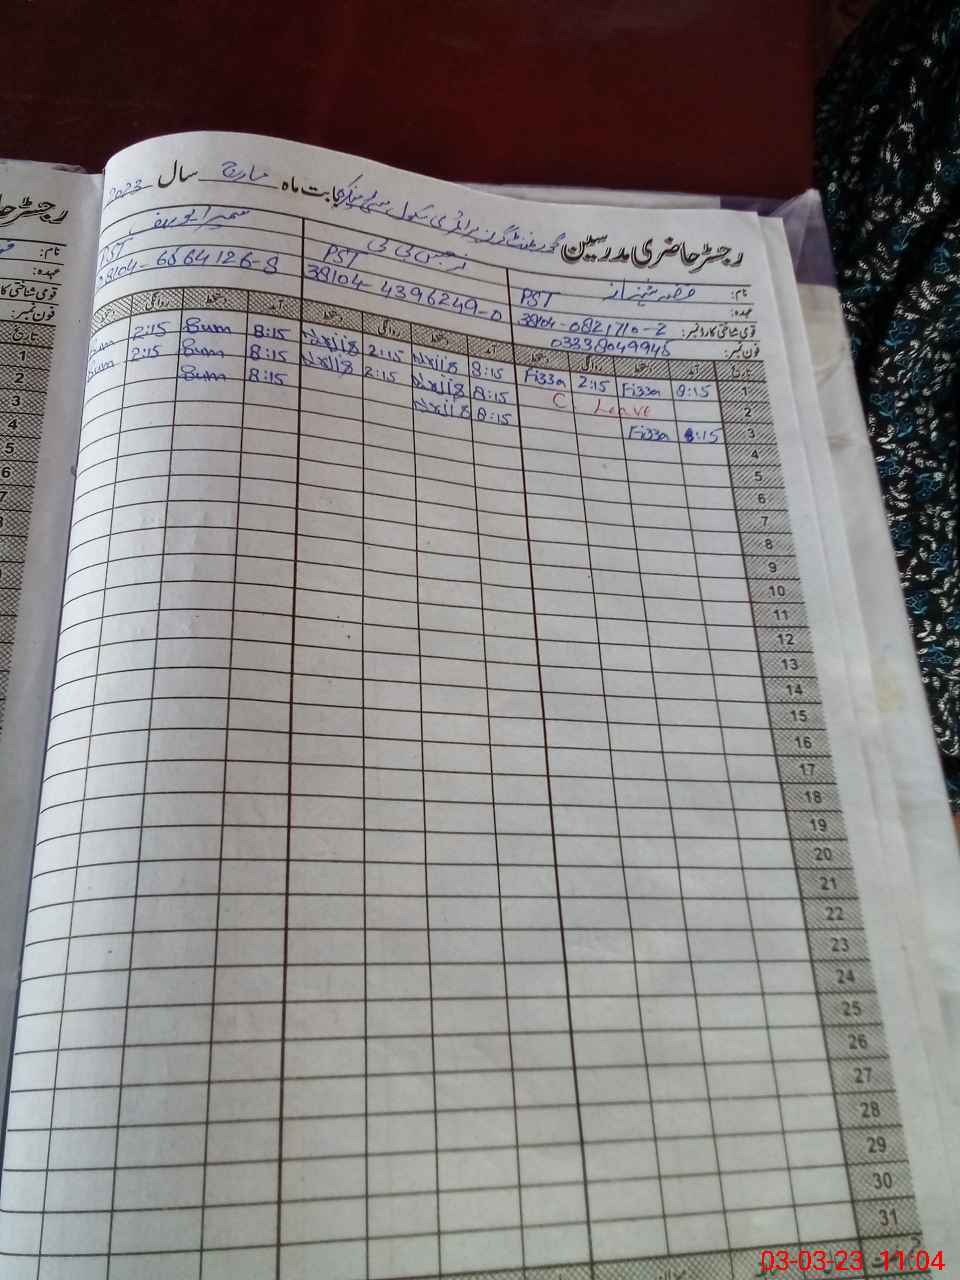 رجسٹر حاضری مدرسین گورنمنٹ گرلز پرائمری سکول بابت ماہ مارچ سال 2023
نام: فضہ شہناز نرجس بی بی سمیرا یوسف
عہدہ: PST PST PST
قومی شناختی کارڈ نمبر: 38104-0821710-2 38104-4396249-0 38104-6564126-8
فون نمبر: 03338049945
تاریخ آمد دستخط روانگی دستخط آمد دستخط روانگی دستخط آمد دستخط روانگی دستخط
1 8:15 Fizza 2:15 Fizza 8:15 2:15 8:15 Sum 2:15 Sum
2 C. Leave 8:15 2:15 8:15 Sum 2:15 Sum
3 8:15 Fizza 8:15 8:15 Sum
4
5
6
7
8
9
10
11
12
13
14
15
16
17
18
19
20
21
22
23
24
25
26
27
28
29
30
31
رجسٹر حا
نام:
عہدہ:
قومی شناختی کا
فون نمبر:
تاریخ
1
2
3
4
5
6
7
03-03-23 11:04